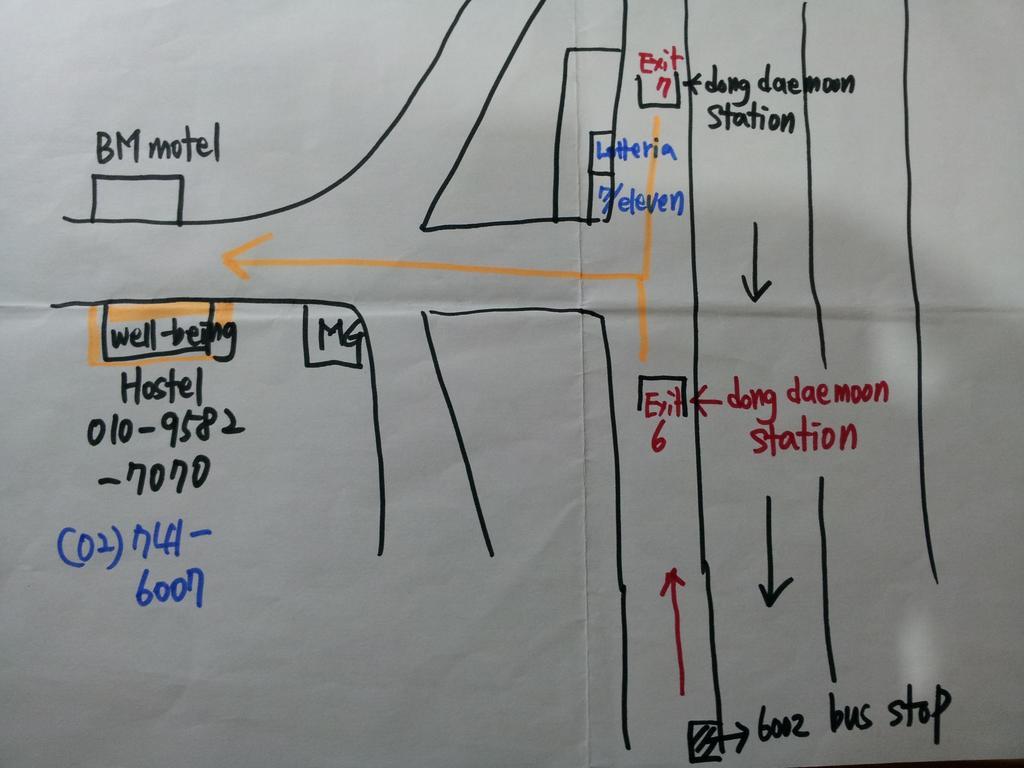 Exit
7
dong daemoon
station
BM motel
Lotteria
7/eleven
well-being
Hostel
010-9582
-7070
(02) 741-
6007
MG
Exit
6
dong daemoon
station
6002 bus stop